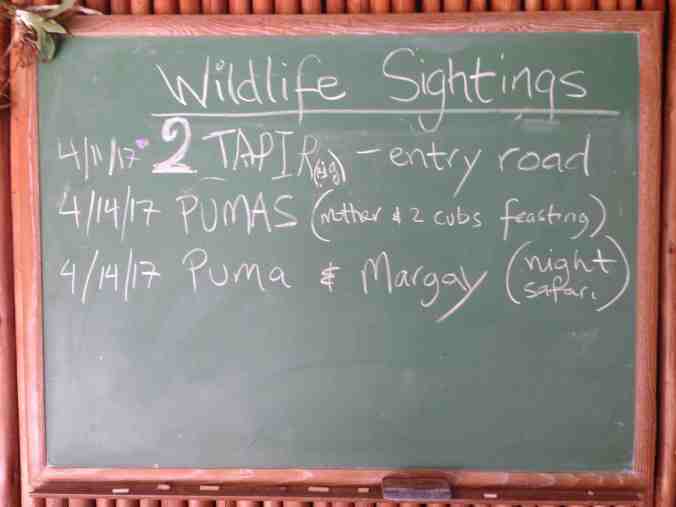 Wildlife Sightings
4/11/17 2 TAPIR (big) - entry road
4/14/17 PUMAS (mother & 2 cubs feasting)
4/14/17 Puma & Margay (night safari)